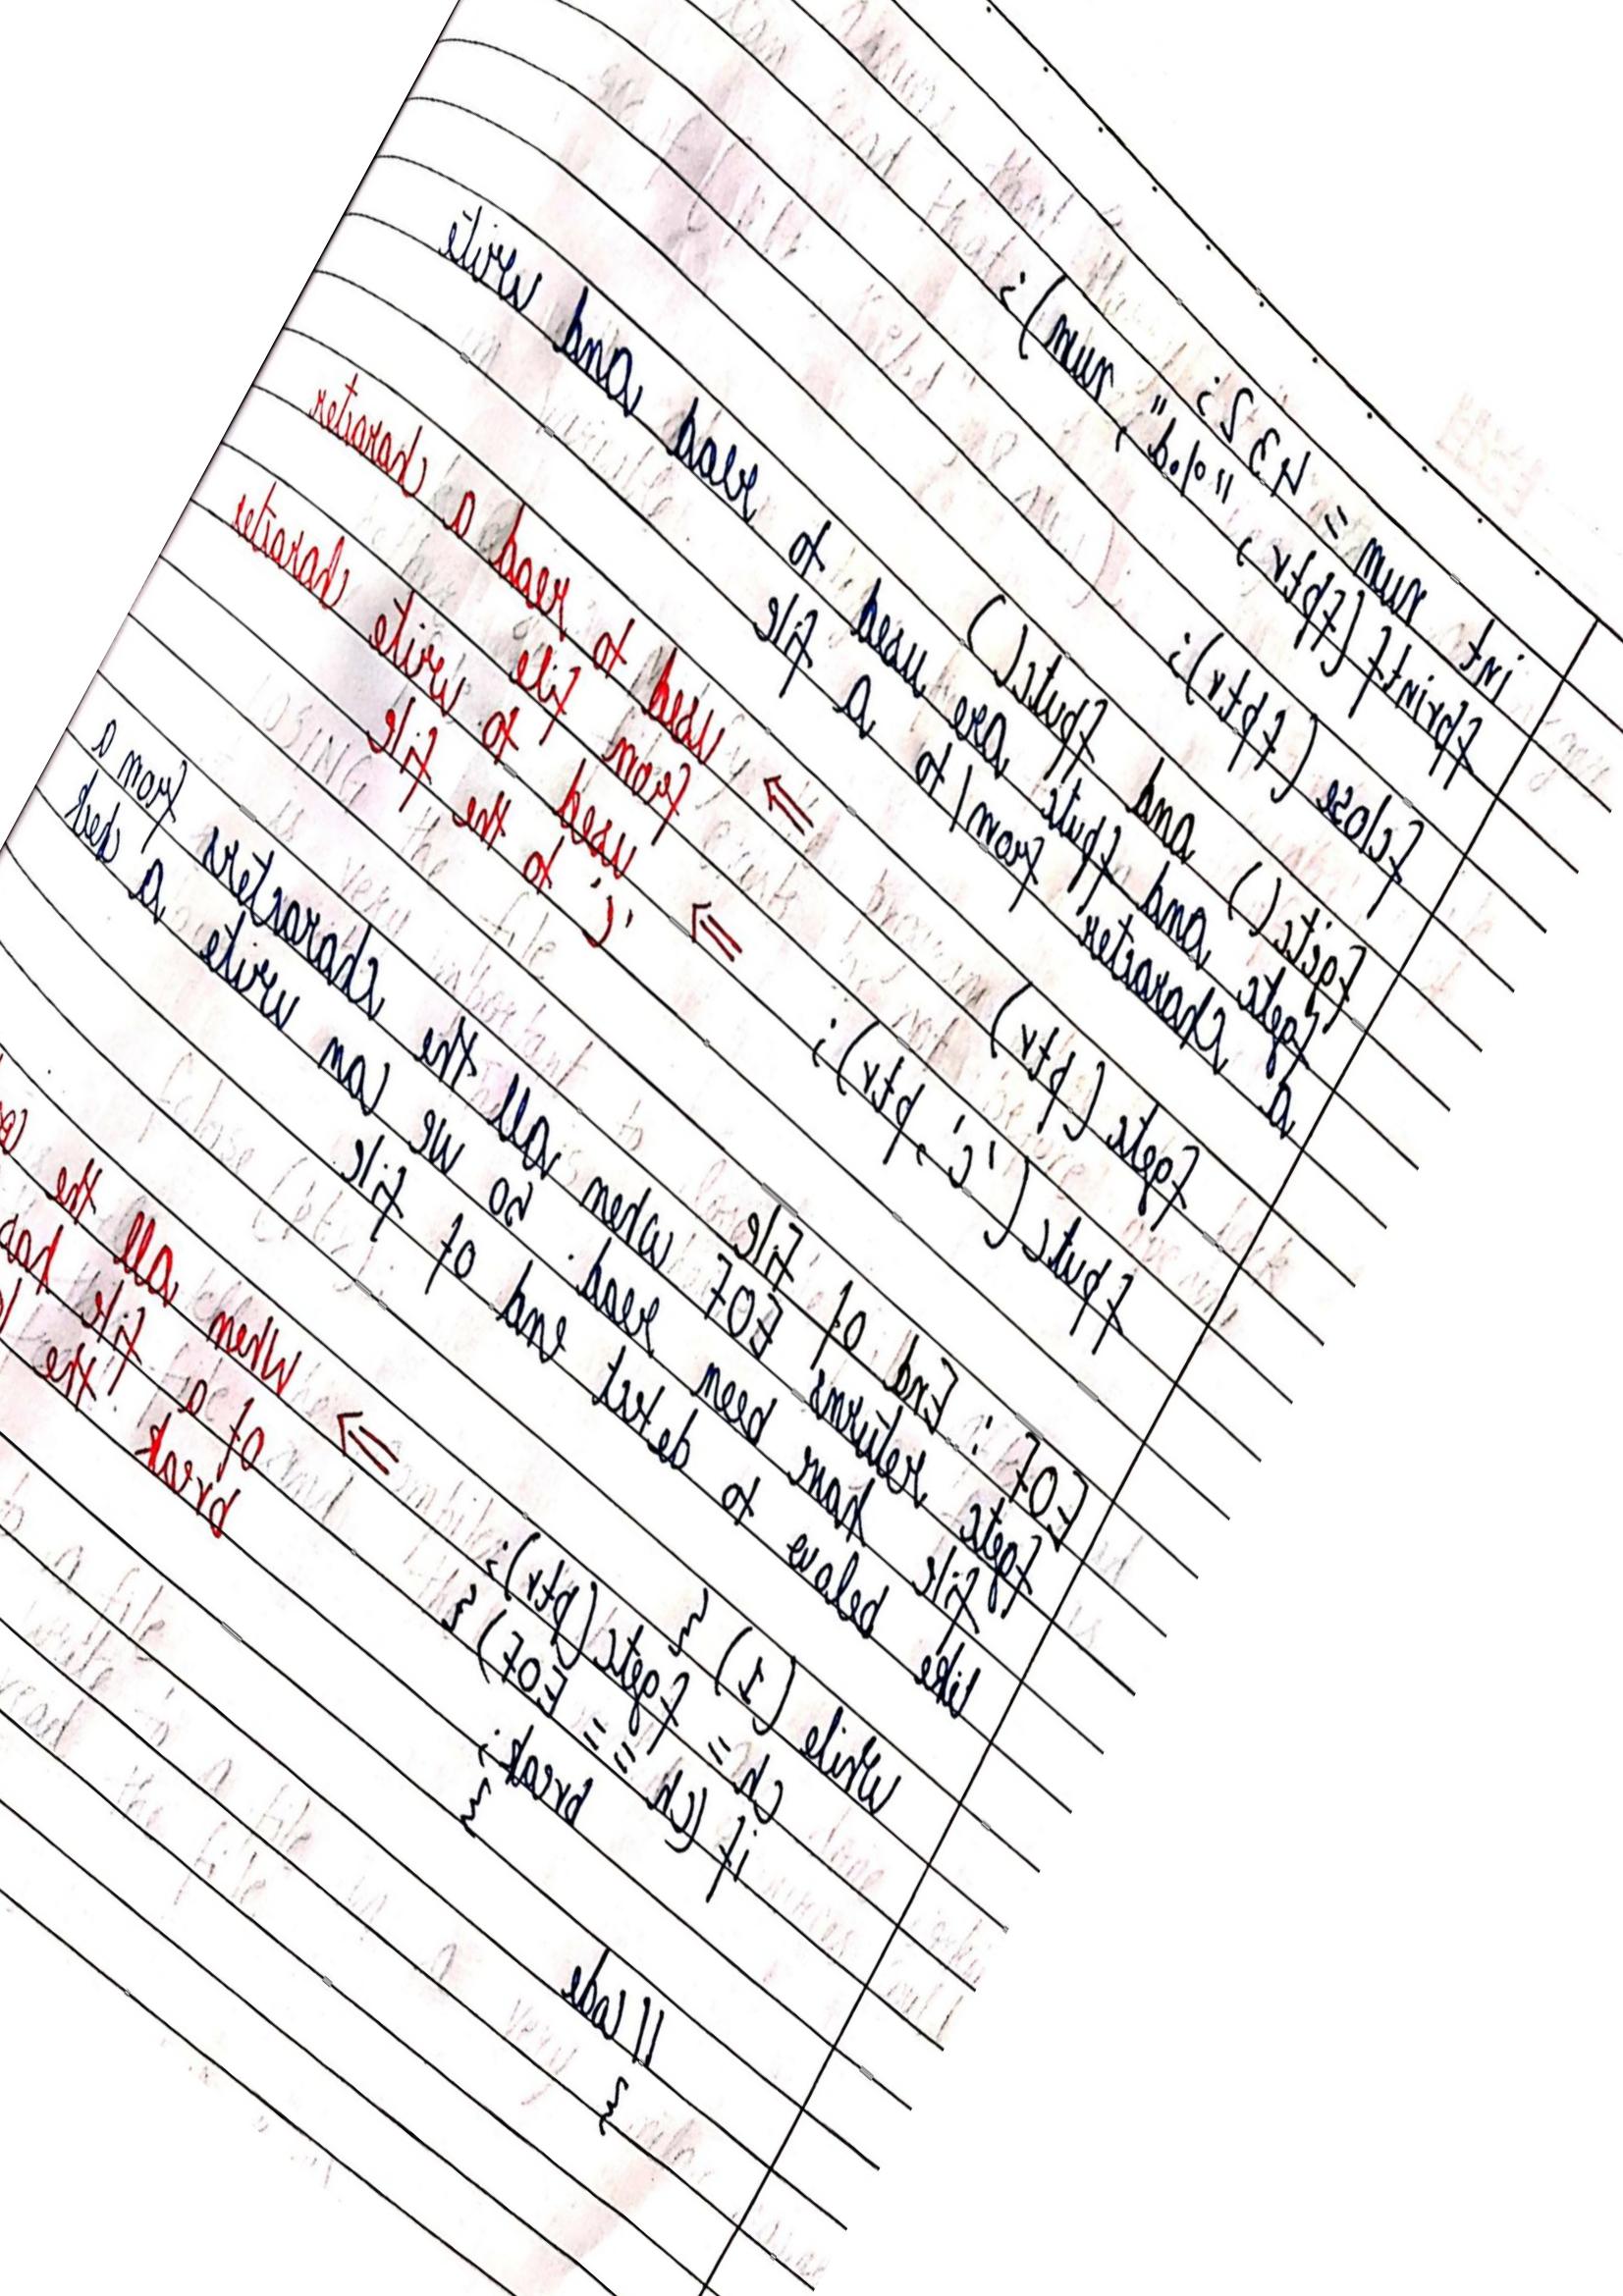 int num = 432;
fprintf (fptr, "%d", num);
fclose (fptr);
fgetc() and fputc()
fgetc and fputc are used to read and write
a character from/to a file
fgetc (ptr) ⇒ used to read a character
from file
fputc ('c', ptr); ⇒ used to write character
'c' to the file
EOF : End of File
fgetc returns EOF when all the characters from a
file have been read. so we can write a check
like below to detect end of file
while (1) {
ch = fgetc (ptr); ⇒ When all the
if (ch == EOF) { of a file has
break; the
} break
// code
}